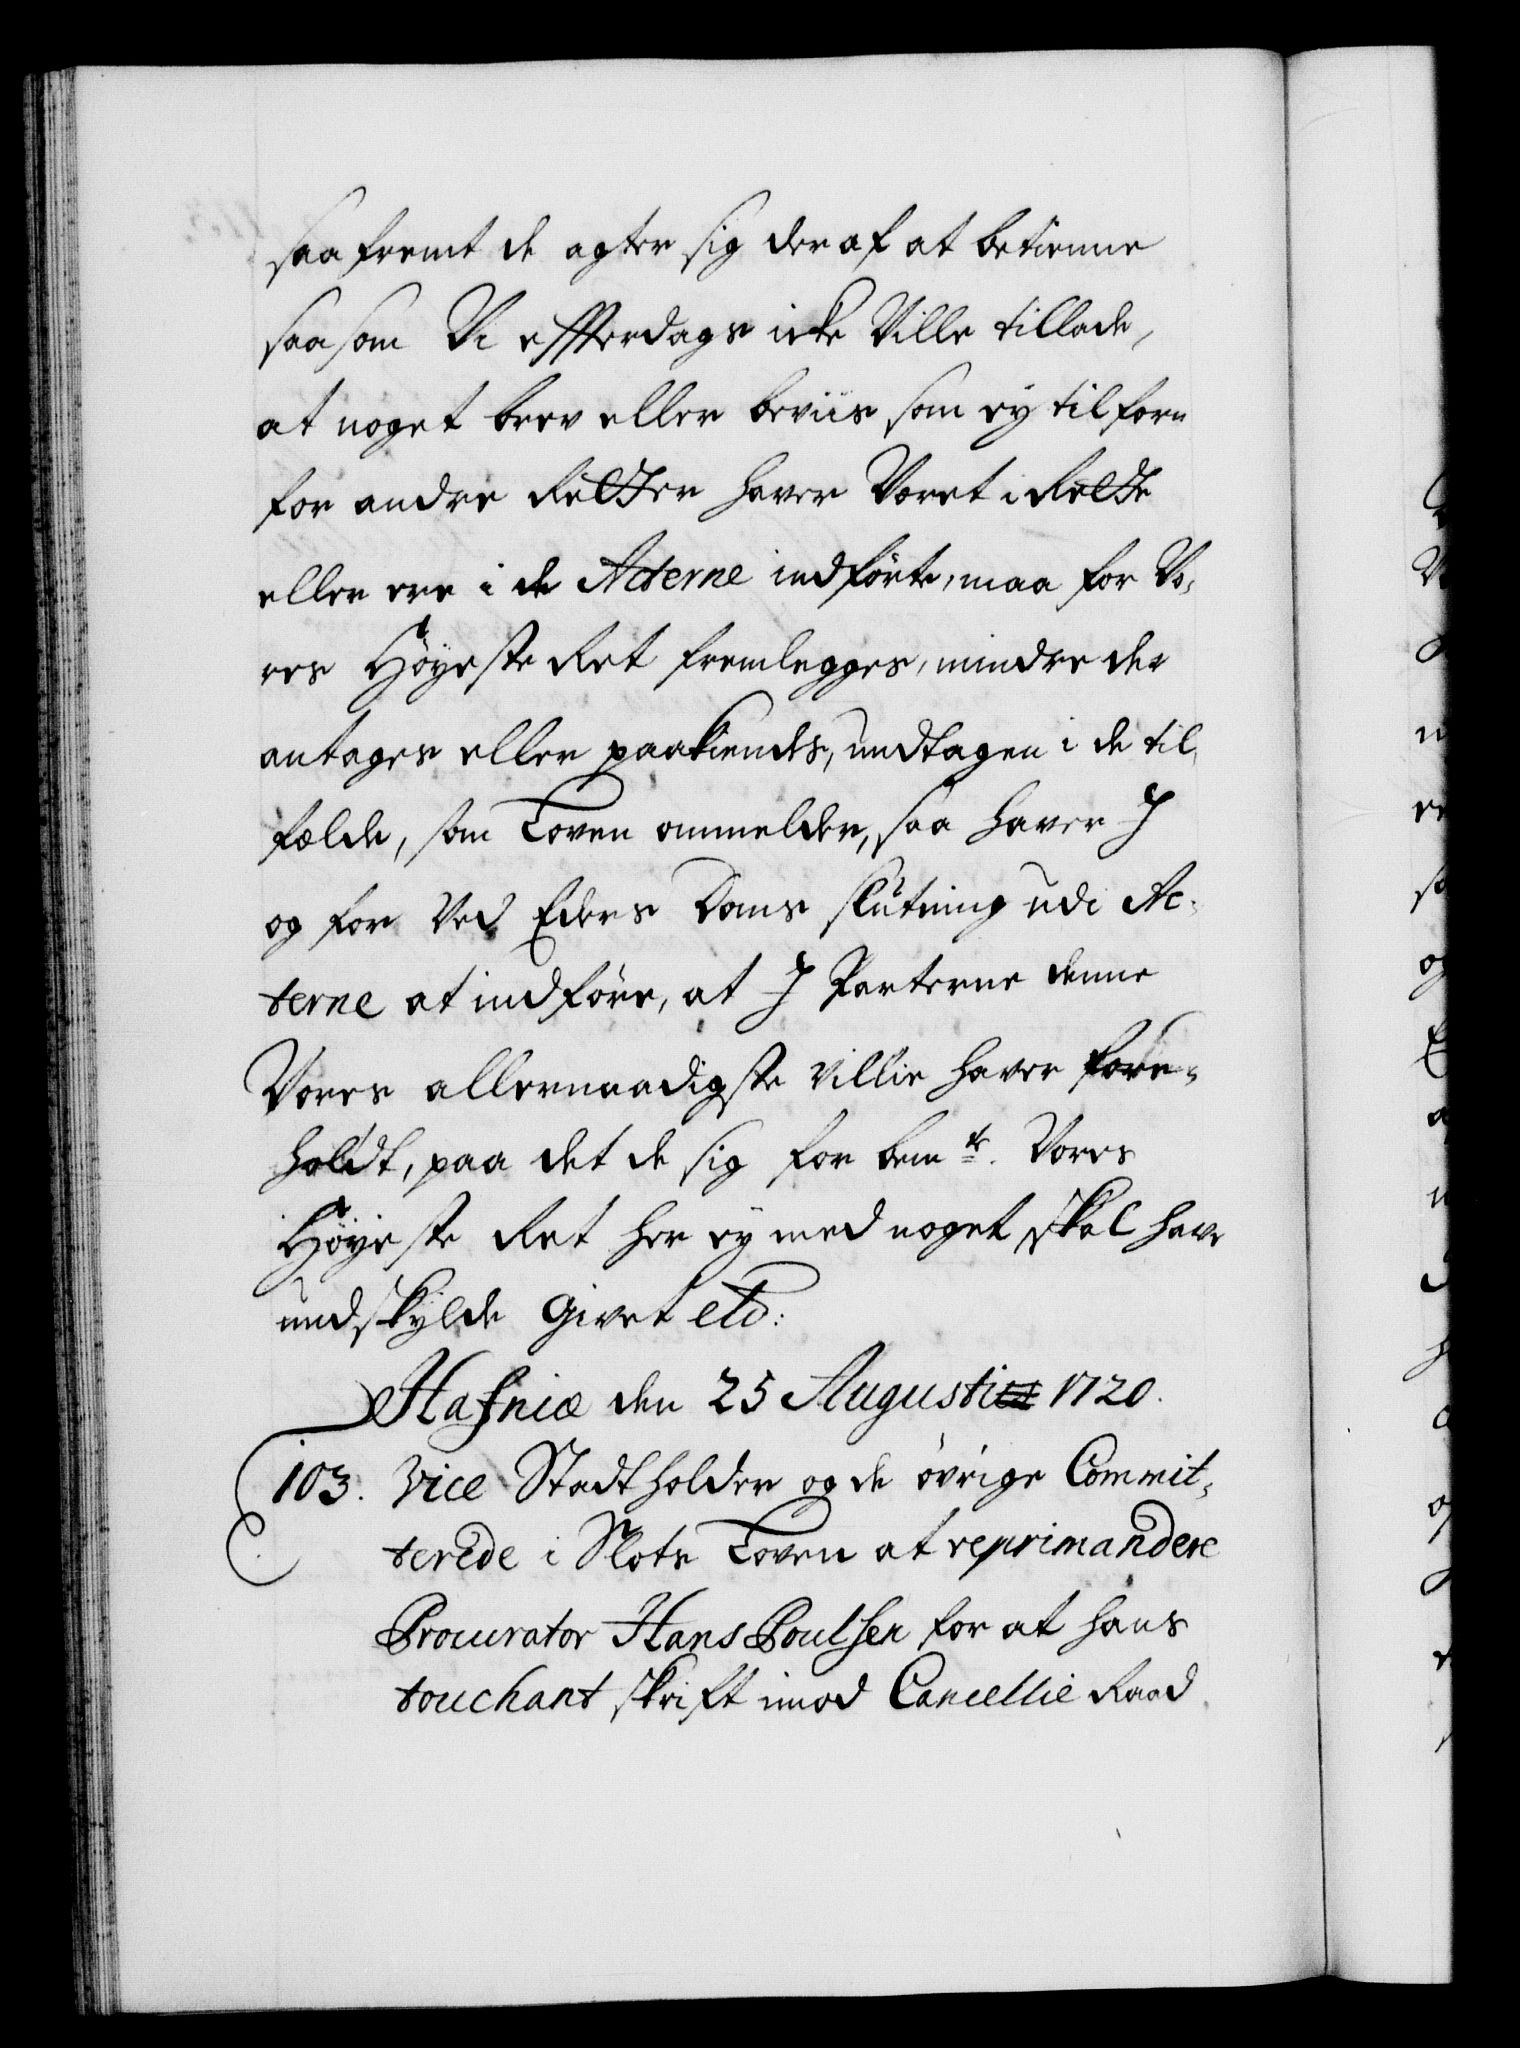 saa fremt de agter sig der af at betienne
saa som Vi effterdags icke Ville tillade,
at noget brev eller beviis som ey tilforn
for andre Retter haver Veret i Rette
eller ere i de Acterne indførte, maa for Vo,
res Høyeste Ret fremlegges, mindre der
antages eller paakiendes, undtagen i de til,
fælde, som Loven ommelder, saa haver J
og for Ved Eders Doms slutning udi Ac,
terne at indføre, at J Parterne denne
Vores allernaadigste Villie haver fore,
holdt, paa det de sig for bemte. Vores
Høyeste Ret her ey med noget skal have
undskylde Givet etc:
Hafniæ den 25 Augusti 1720.
103. Vice Stadtholder og de øvrige Commit,
terede i Slots Loven at reprimandere
Procurator Hans Poulsen for at hans
touchant skrift imod Cancellie Raad